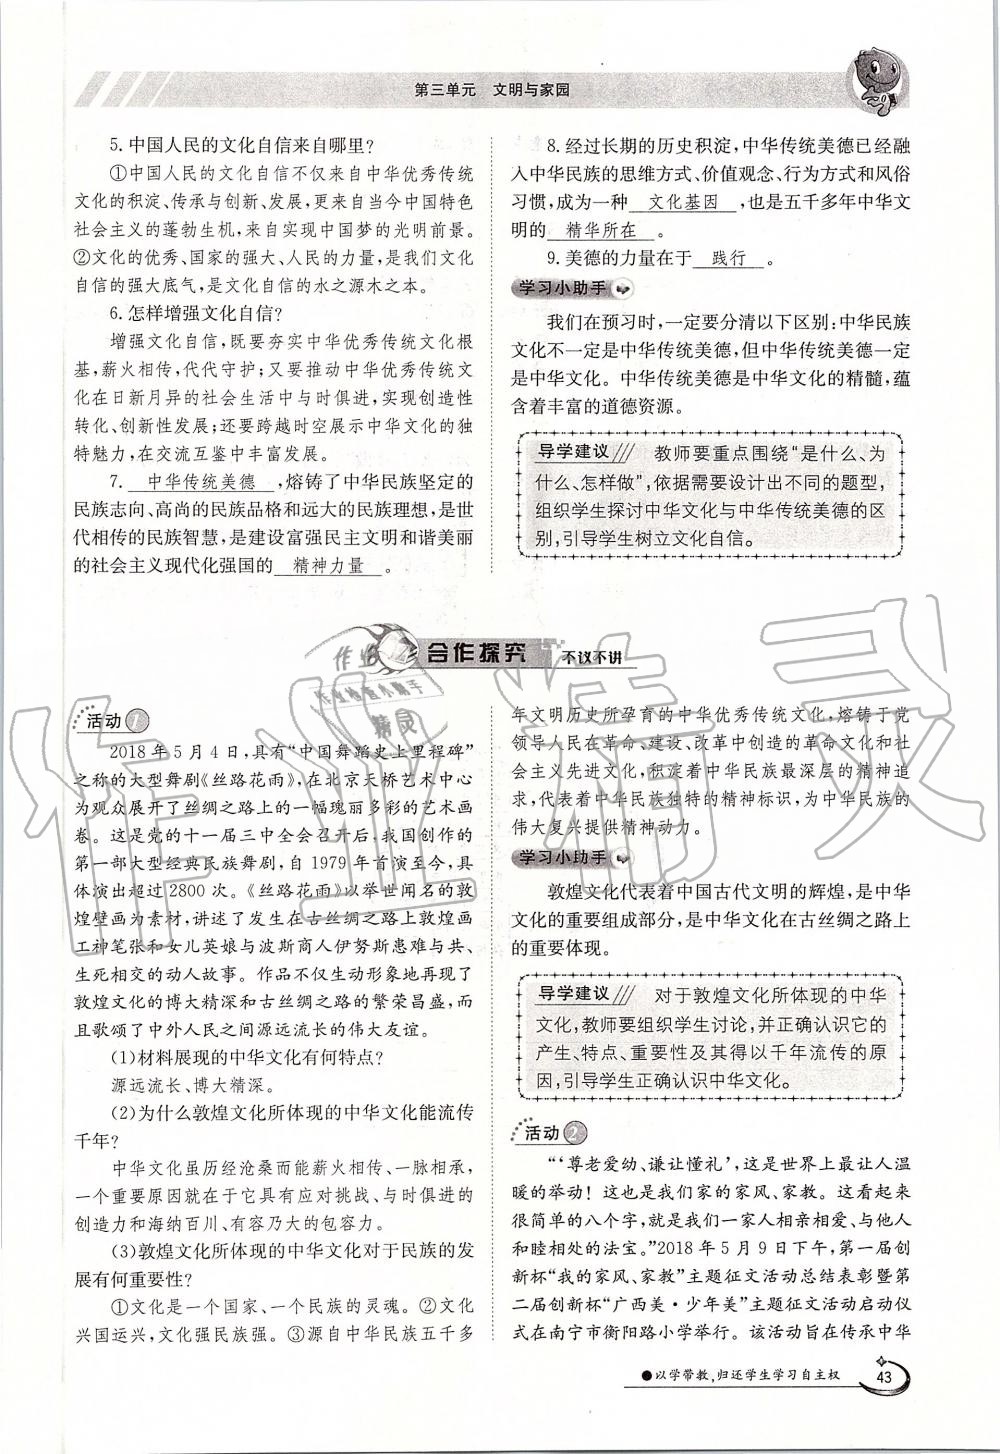 第三单元 文明与家园
5. 中国人民的文化自信来自哪里?
①中国人民的文化自信不仅来自中华优秀传统
文化的积淀、传承与创新、发展,更来自当今中国特色
社会主义的蓬勃生机,来自实现中国梦的光明前景。
②文化的优秀、国家的强大、人民的力量,是我们文化
自信的强大底气,是文化自信的水之源木之本。
6. 怎样增强文化自信?
增强文化自信,既要夯实中华优秀传统文化根
基,薪火相传,代代守护;又要推动中华优秀传统文
化在日新月异的社会生活中与时俱进,实现创造性
转化、创新性发展;还要跨越时空展示中华文化的独
特魅力,在交流互鉴中丰富发展。
7. 中华传统美德 ,熔铸了中华民族坚定的
民族志向、高尚的民族品格和远大的民族理想,是世
代相传的民族智慧,是建设富强民主文明和谐美丽
的社会主义现代化强国的 精神力量 。
8. 经过长期的历史积淀,中华传统美德已经融
入中华民族的思维方式、价值观念、行为方式和风俗
习惯,成为一种 文化基因 ,也是五千多年中华文
明的 精华所在 。
9. 美德的力量在于 践行 。
学习小助手
我们在预习时,一定要分清以下区别:中华民族
文化不一定是中华传统美德,但中华传统美德一定
是中华文化。中华传统美德是中华文化的精髓,蕴
含着丰富的道德资源。
导学建议 教师要重点围绕“是什么、为
什么、怎样做”,依据需要设计出不同的题型,
组织学生探讨中华文化与中华传统美德的区
别,引导学生树立文化自信。
合作探究 不议不讲
活动1
2018年5月4日,具有“中国舞蹈史上里程碑”
之称的大型舞剧《丝路花雨》,在北京天桥艺术中心
为观众展开了丝绸之路上的一幅瑰丽多彩的艺术画
卷。这是党的十一届三中全会召开后,我国创作的
第一部大型经典民族舞剧,自1979年首演至今,具
体演出超过2800次。《丝路花雨》以举世闻名的敦
煌壁画为素材,讲述了发生在古丝绸之路上敦煌画
工神笔张和女儿英娘与波斯商人伊努斯患难与共、
生死相交的动人故事。作品不仅生动形象地再现了
敦煌文化的博大精深和古丝绸之路的繁荣昌盛,而
且歌颂了中外人民之间源远流长的伟大友谊。
(1)材料展现的中华文化有何特点?
源远流长、博大精深。
(2)为什么敦煌文化所体现的中华文化能流传
千年?
中华文化虽历经沧桑而能薪火相传、一脉相承,
一个重要原因就在于它具有应对挑战、与时俱进的
创造力和海纳百川、有容乃大的包容力。
(3)敦煌文化所体现的中华文化对于民族的发
展有何重要性?
①文化是一个国家、一个民族的灵魂。②文化
兴国运兴,文化强民族强。③源自中华民族五千多
年文明历史所孕育的中华优秀传统文化,熔铸于党
领导人民在革命、建设、改革中创造的革命文化和社
会主义先进文化,积淀着中华民族最深层的精神追
求,代表着中华民族独特的精神标识,为中华民族的
伟大复兴提供精神动力。
学习小助手
敦煌文化代表着中国古代文明的辉煌,是中华
文化的重要组成部分,是中华文化在古丝绸之路上
的重要体现。
导学建议 对于敦煌文化所体现的中华
文化,教师要组织学生讨论,并正确认识它的
产生、特点、重要性及其得以千年流传的原
因,引导学生正确认识中华文化。
活动2
“‘尊老爱幼、谦让懂礼’,这是世界上最让人温
暖的举动!这也是我们家的家风、家教。这看起来
很简单的八个字,就是我们一家人相亲相爱、与他人
和睦相处的法宝。”2018年5月9日下午,第一届创
新杯“我的家风、家教”主题征文活动总结表彰暨第
二届创新杯“广西美·少年美”主题征文活动启动仪
式在南宁市衡阳路小学举行。该活动旨在传承中华
●以学带教,归还学生学习自主权
43
作业精灵
作业
作业检查小助手
精灵